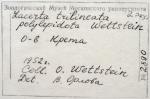 Зоологический Музей Московского университета
Lacerta trilineata 2 экз.
polylepidota Wettstein
О-в Крета
1952 г.
Coll. O. Wettstein
Det. В. Орлова